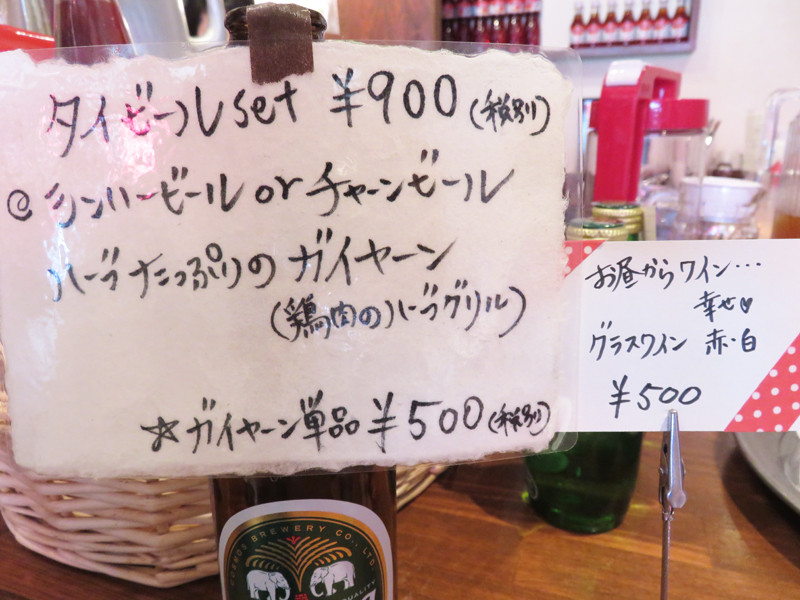 タイビールset ¥900(税別)
◎シンハービール or チャーンビール
ハーブたっぷりのガイヤーン
(鶏肉のハーブグリル)
☆ガイヤーン単品 ¥500(税別)
お昼からワイン…
幸せ♥
グラスワイン 赤・白
¥500
BREWERY CO., LTD.
QUALITY